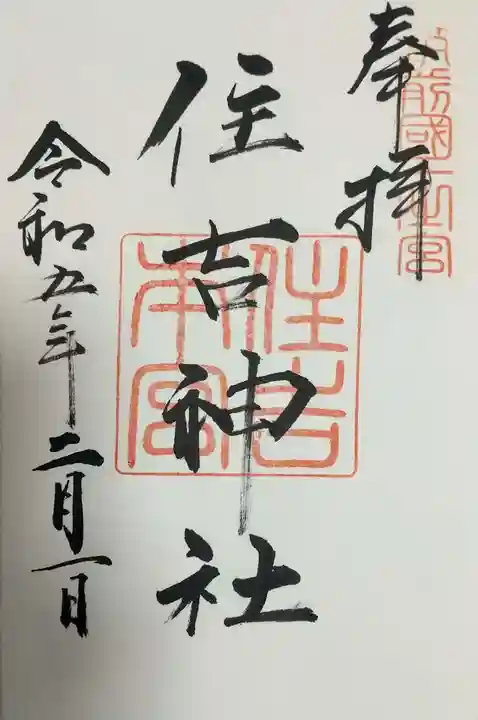 奉拝
筑前國一之宮
住吉神社
住吉本宮
令和五年二月一日